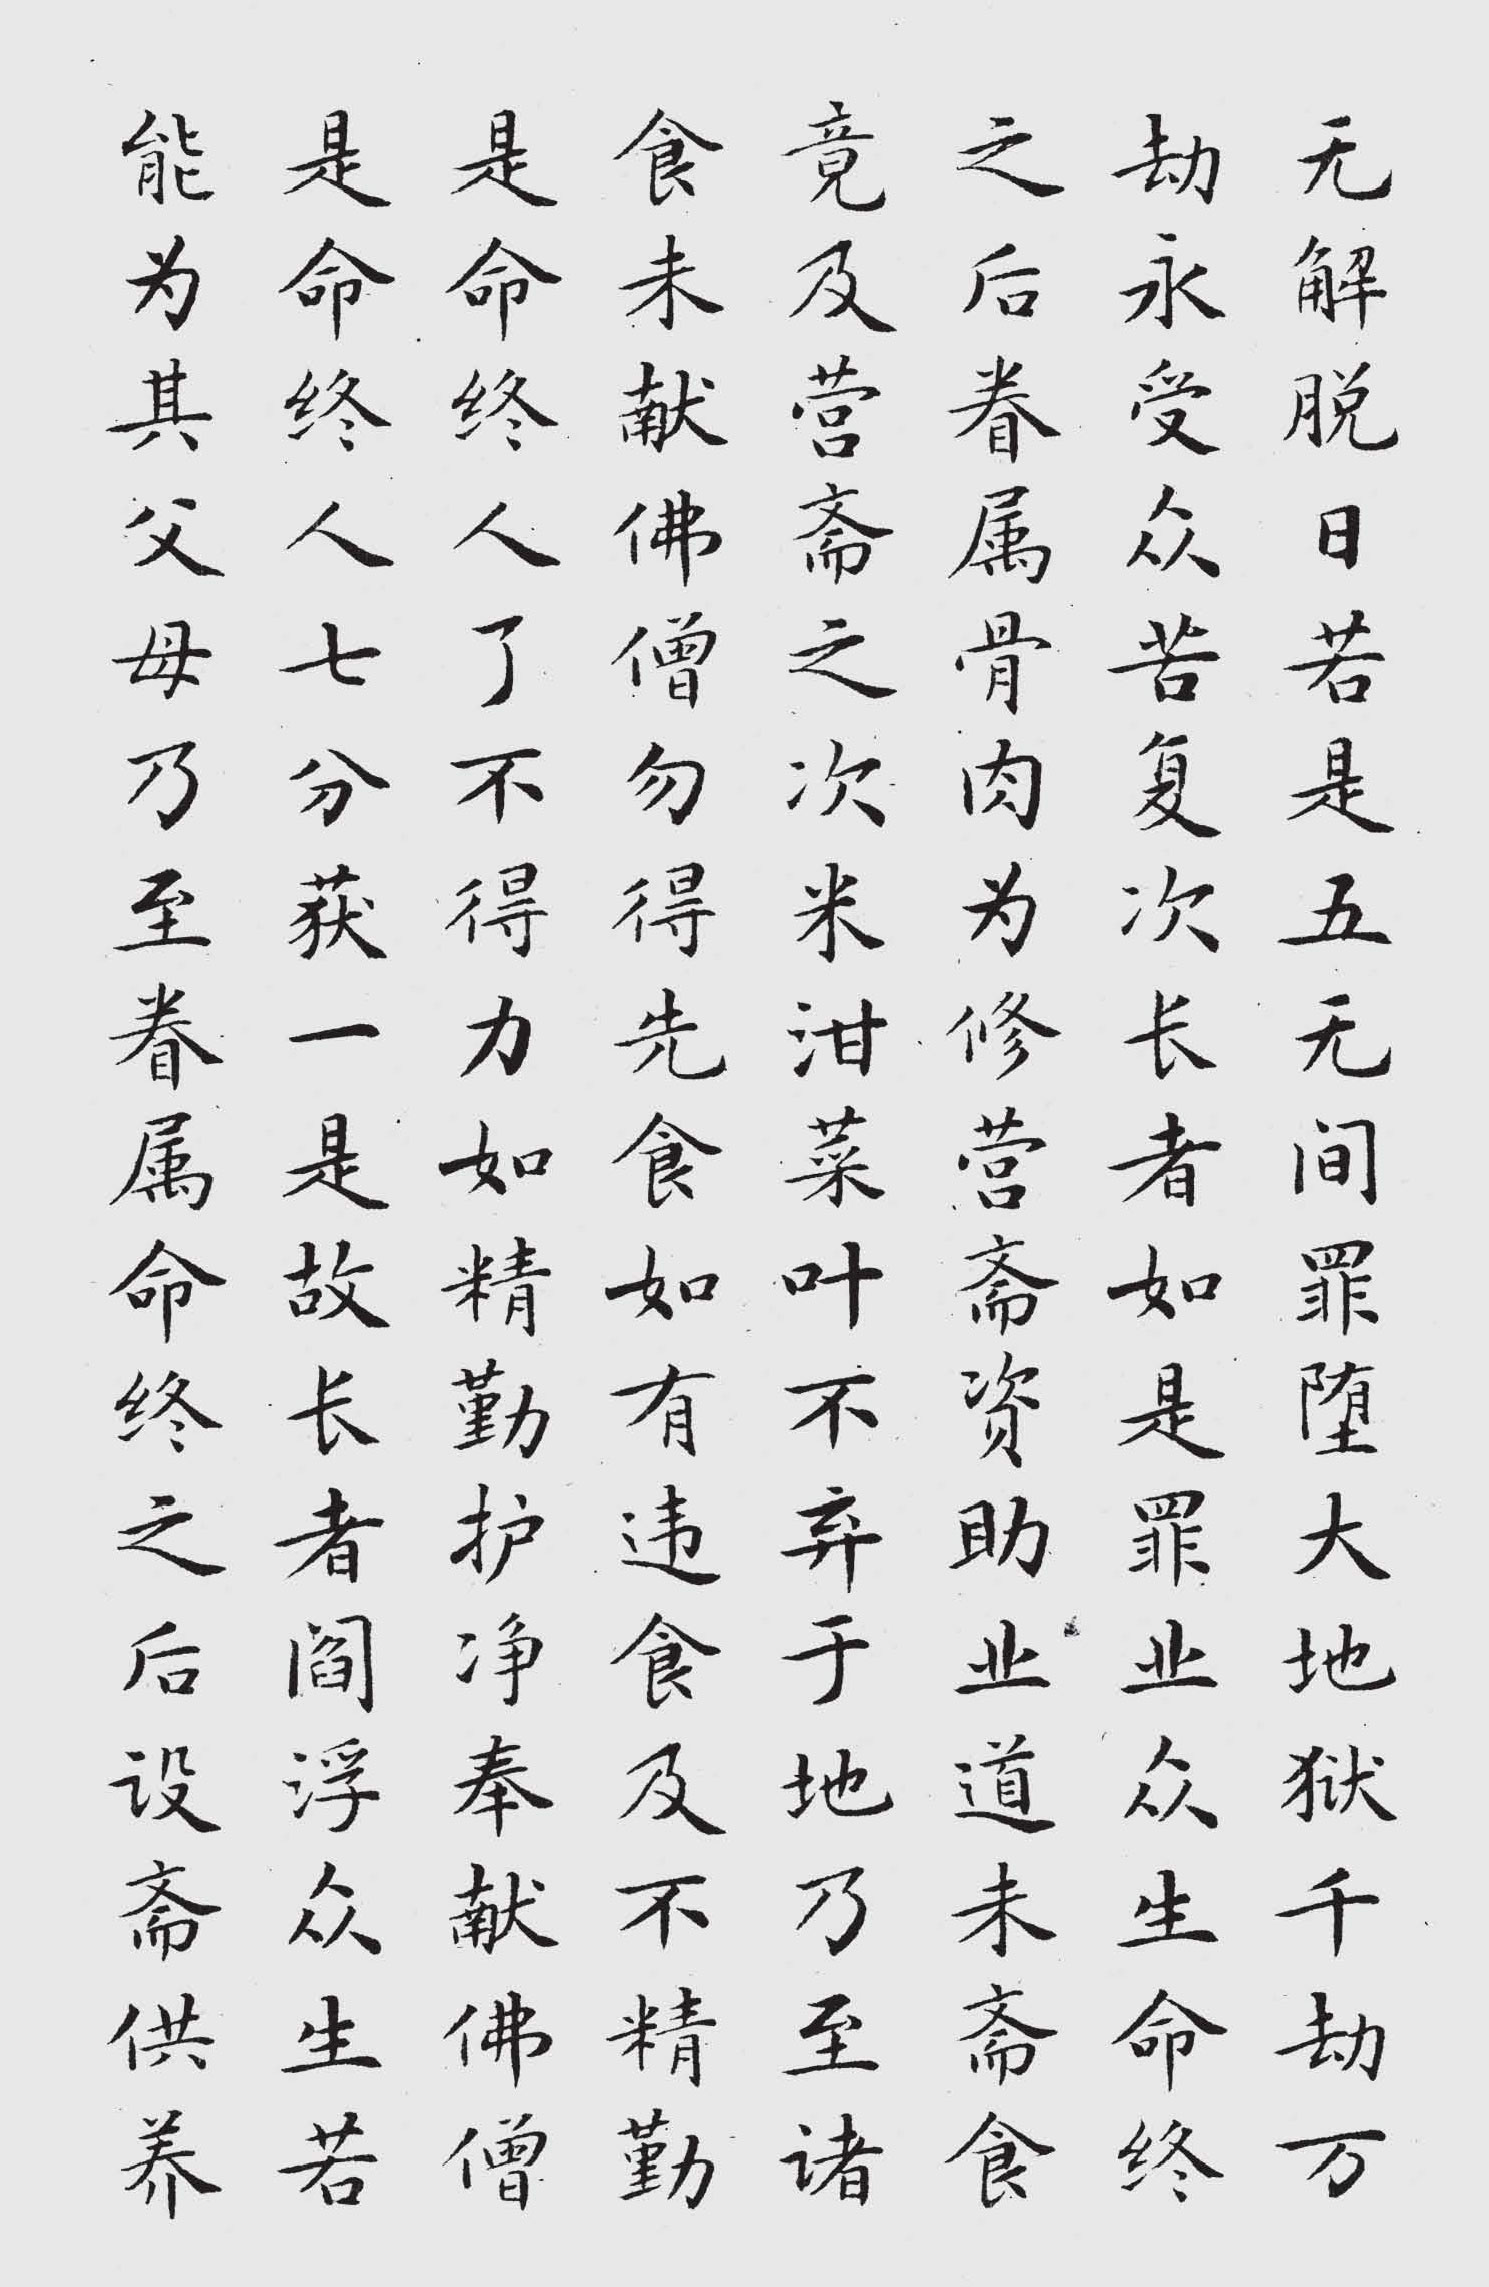 无解脱日若是五无间罪堕大地狱千劫万
劫永受众苦复次长者如是罪业众生命终
之后眷属骨肉为修营斋资助业道未斋食
竟及营斋之次米泔菜叶不弃于地乃至诸
食未献佛僧勿得先食如有违食及不精勤
是命终人了不得力如精勤护净奉献佛僧
是命终人七分获一是故长者阎浮众生若
能为其父母乃至眷属命终之后设斋供养